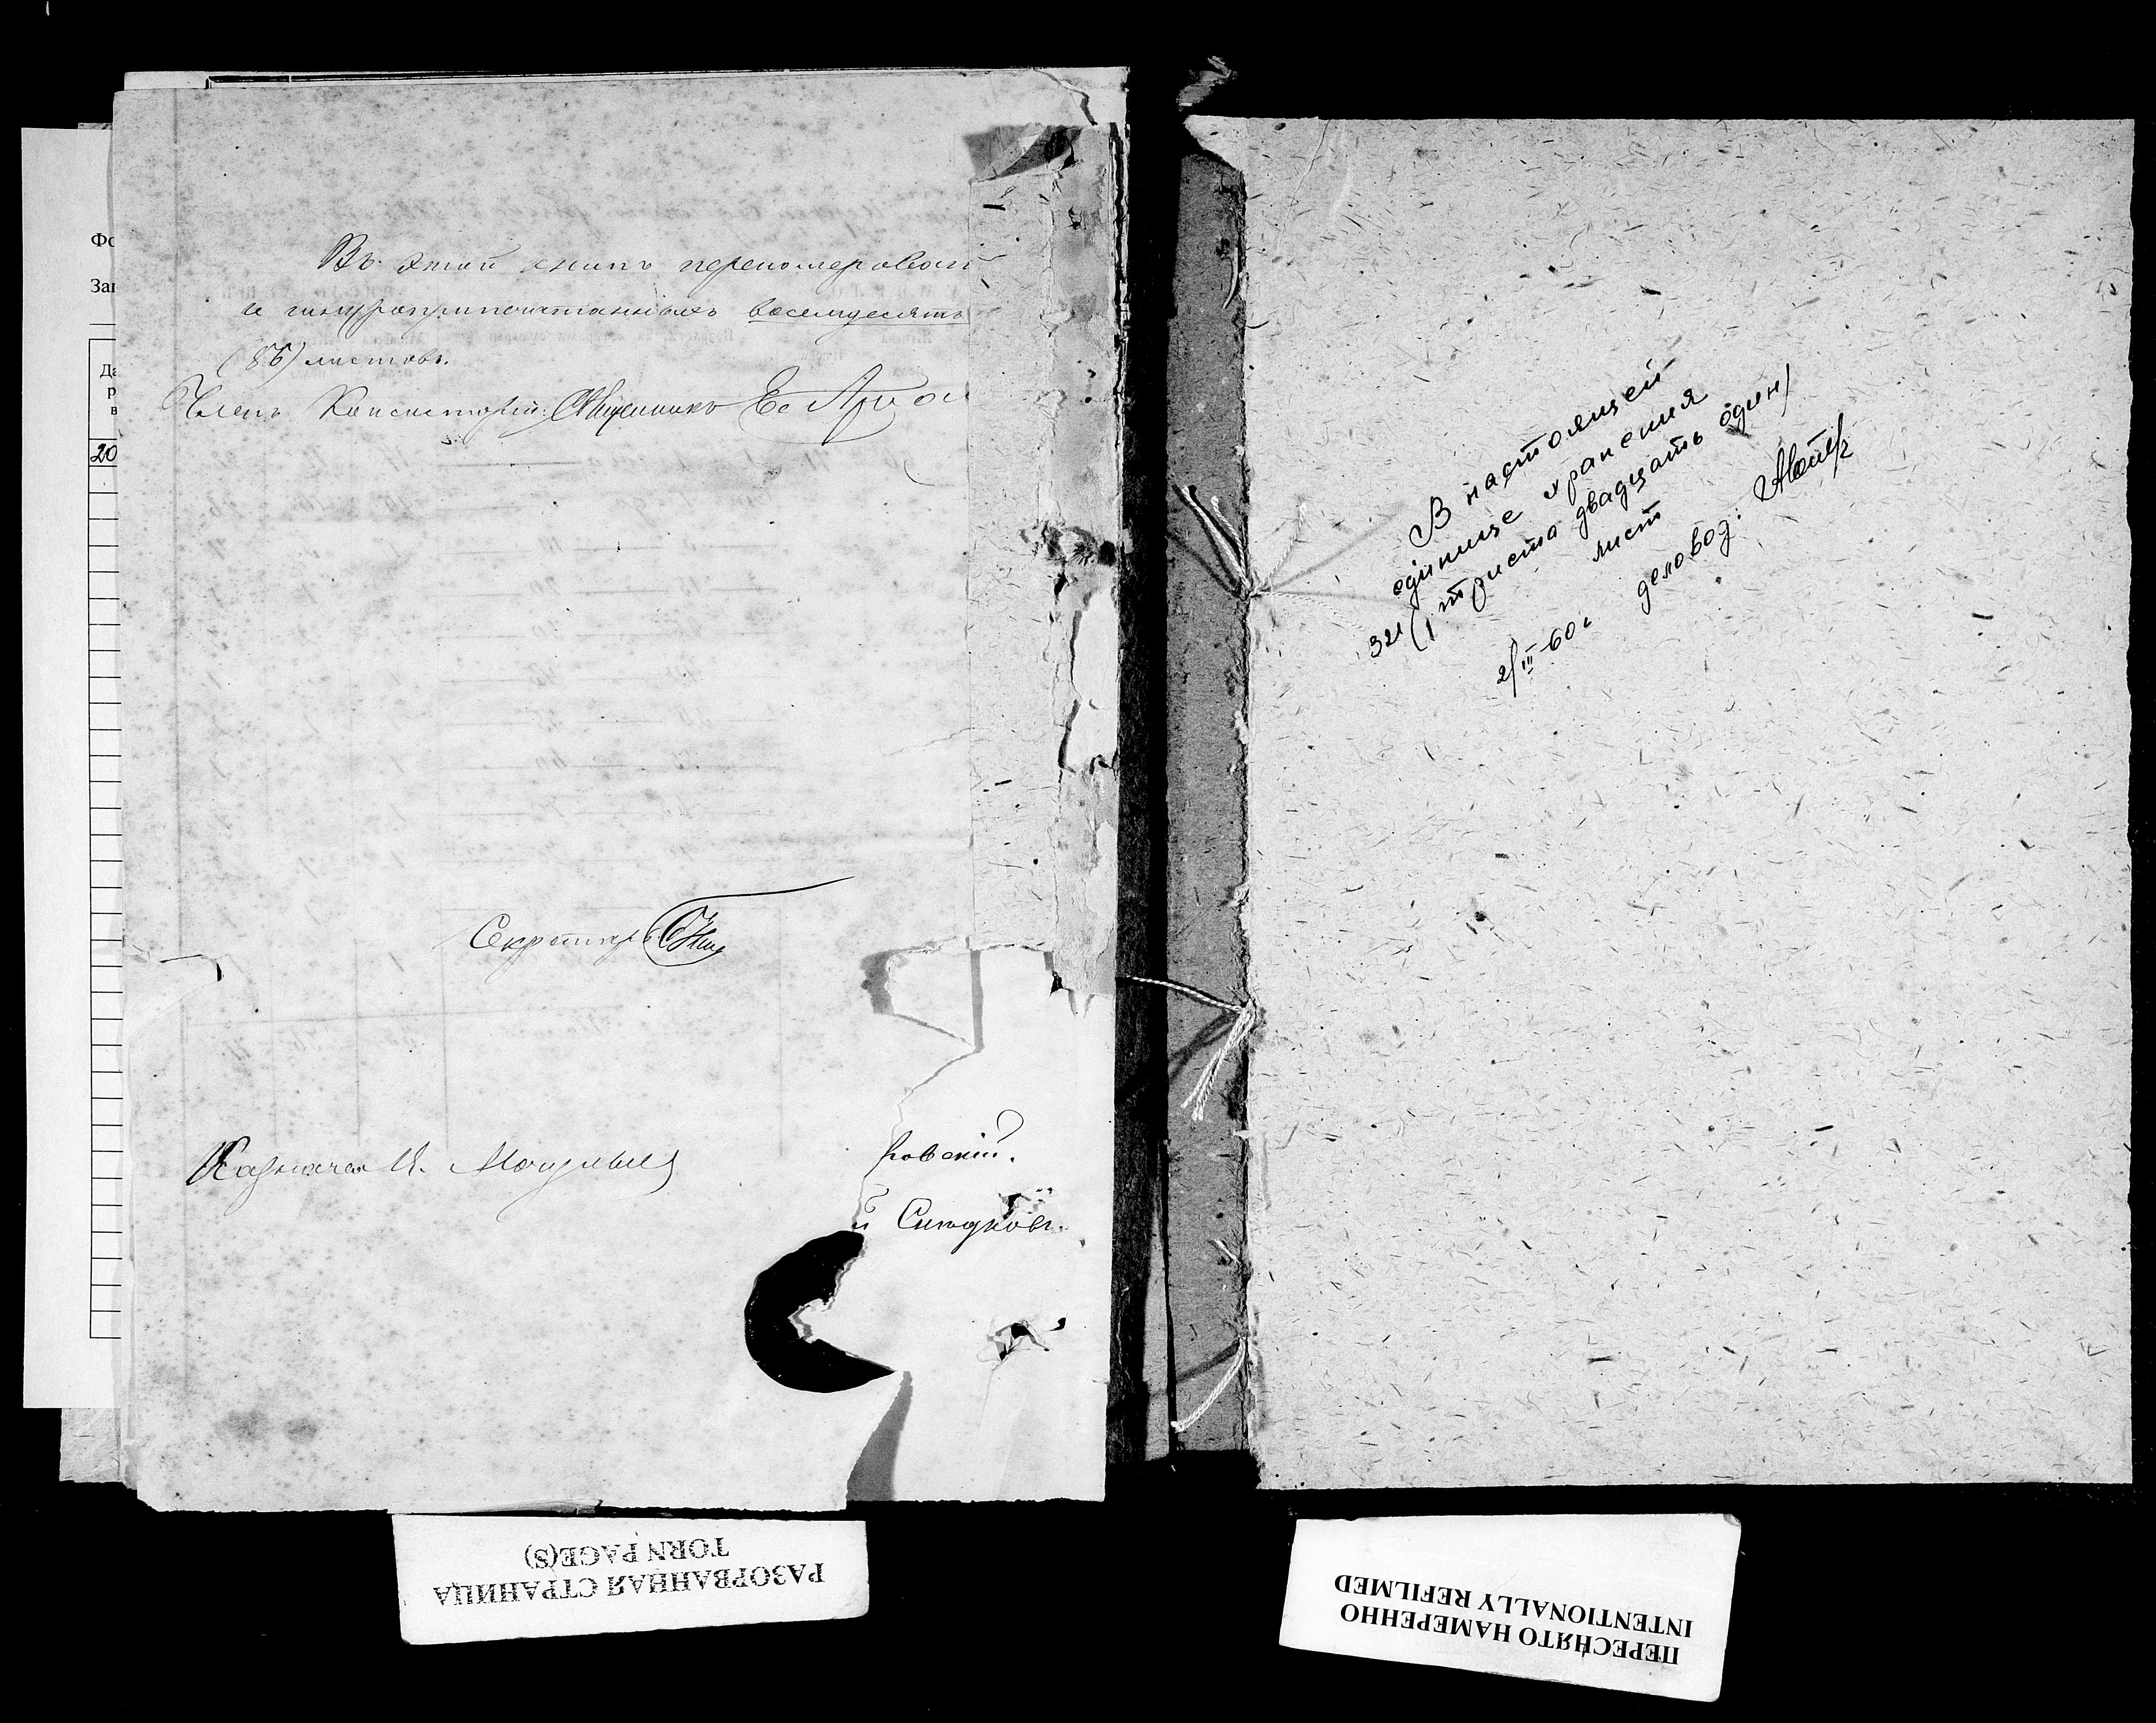 Фо
Заг
Да
р
в
20
Въ этой книгѣ перенумерован
и шнуроприпечатанныхъ восемдесятъ
(86) листовъ.
Членъ Консисторіи: Священникъ
Секретарь
Казначея И.
ровскій.
й
В настоящей
единице хранения
321 (триста двадцать один)
лист
2/III-60 г деловод.
РАЗОРВАННАЯ СТРАНИЦА
TORN PAGE(S)
ПЕРЕСНЯТО НАМЕРЕННО
INTENTIONALLY REFILMED